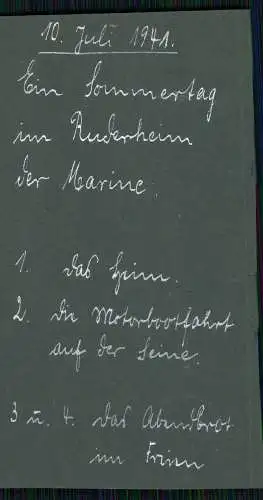 10. Juli 1941.
Ein Sommertag
im Ruderheim
der Marine.
1. das Heim.
2. die Motorbootfahrt
auf der Seine.
3 u. 4. das Abendbrot
im